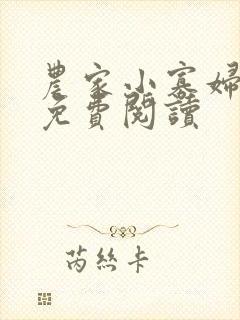 農家小寡婦
免費閱讀
芮絲卡